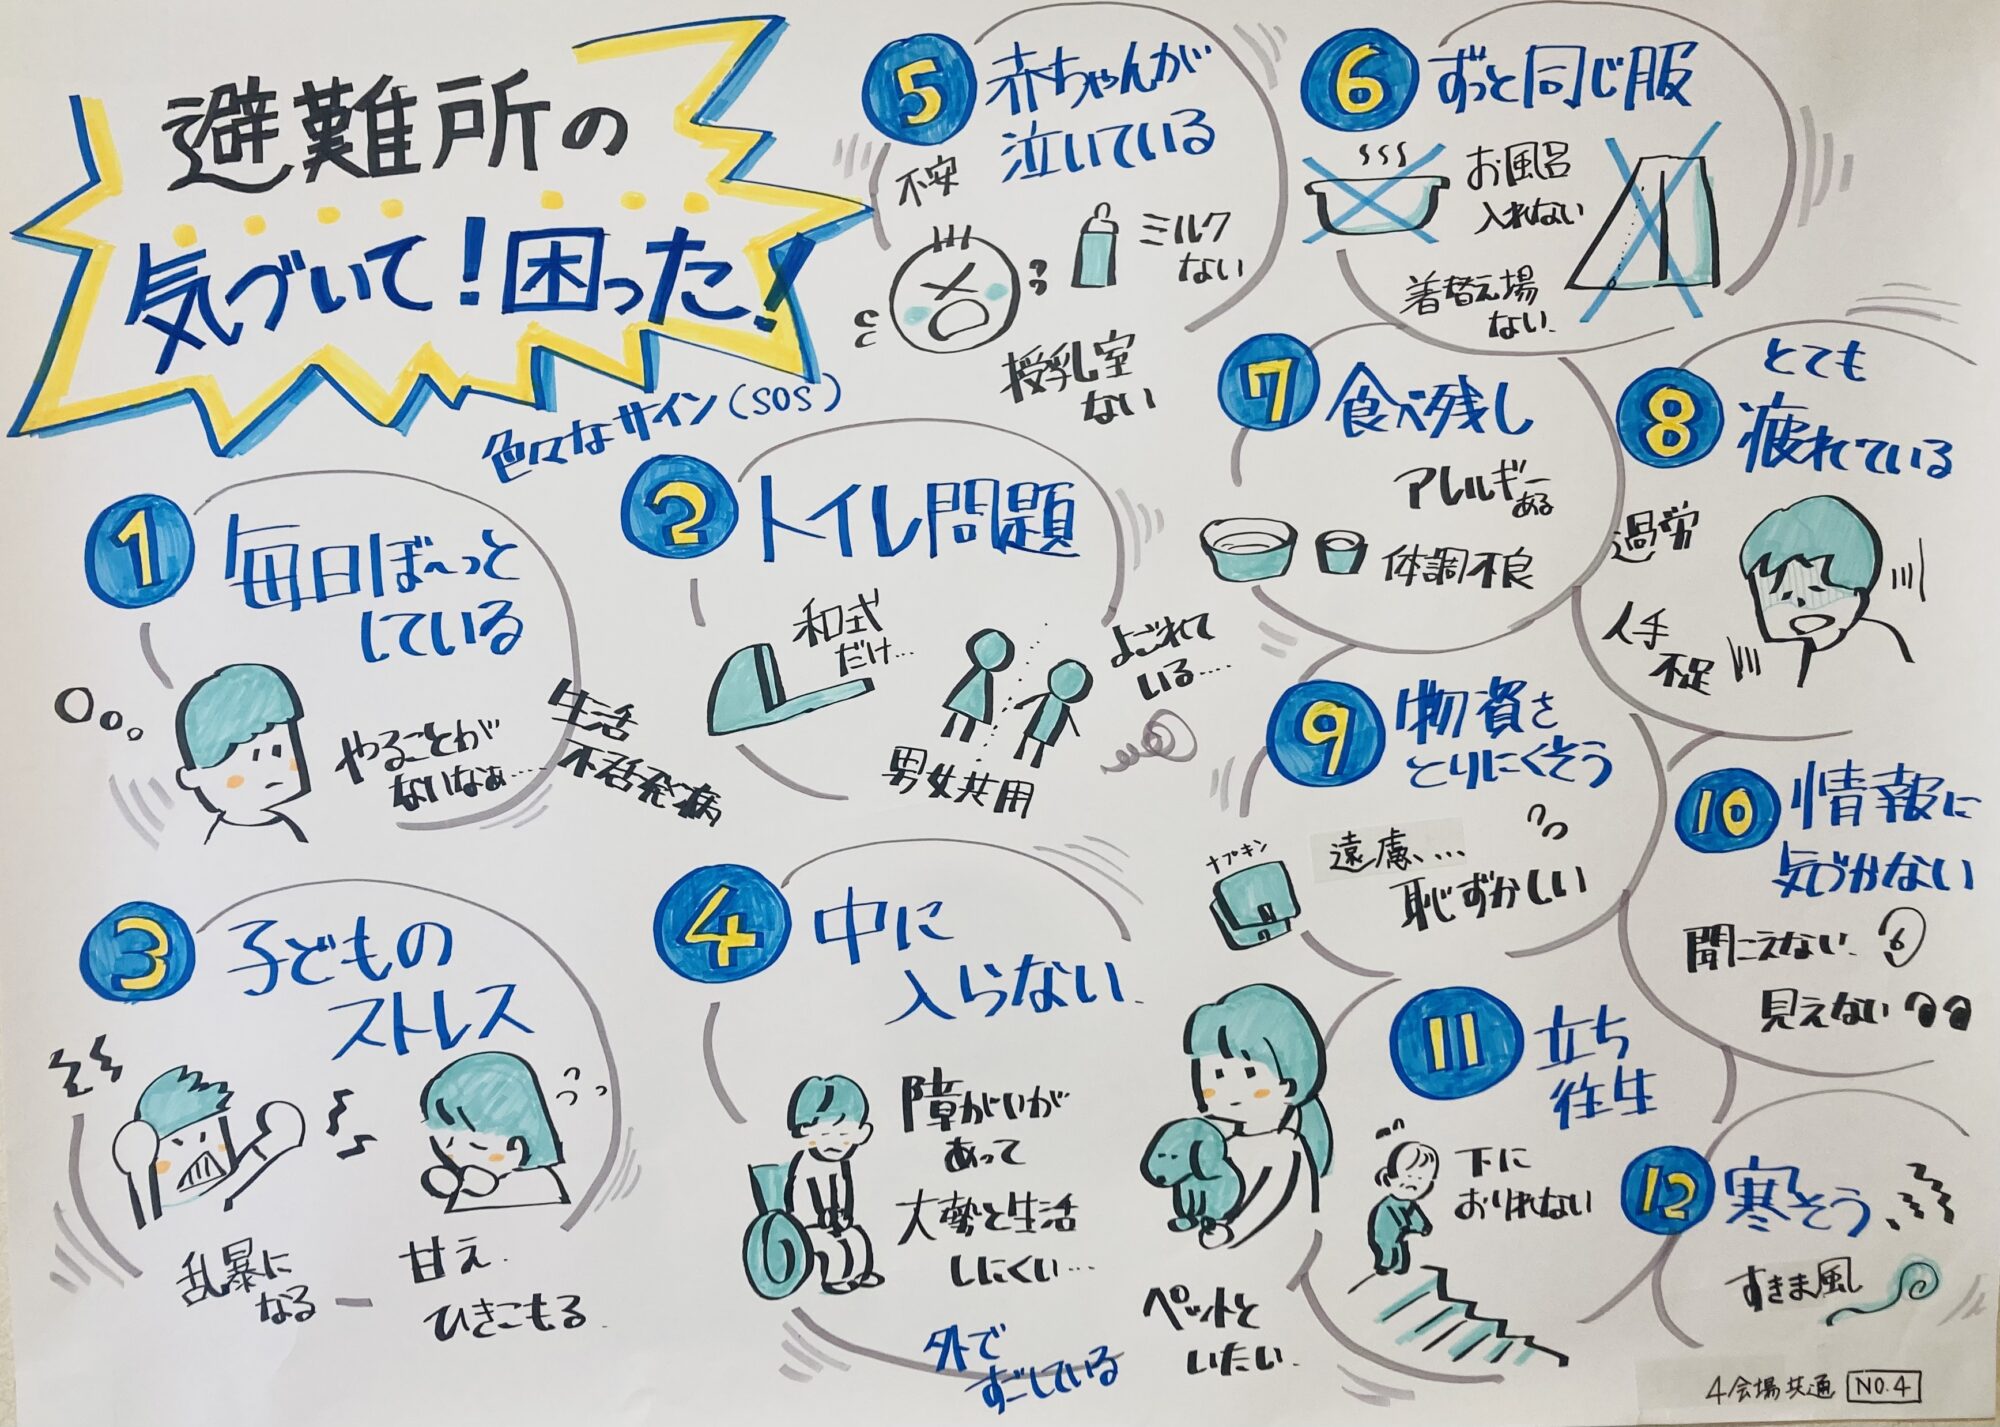 避難所の
気づいて!困った!
色々なサイン(SOS)
1
毎日ぼ〜っと
している
やることが
ないなぁ…
生活
不活発病
2
トイレ問題
和式
だけ…
男女共用
よごれて
いる…
3
子どもの
ストレス
乱暴に
なる
甘え
ひきこもる
4
中に
入らない
障がいが
あって
大勢と生活
しにくい…
外で
すごしている
ペットと
いたい
5
赤ちゃんが
泣いている
不安
ミルク
ない
授乳室
ない
6
ずっと同じ服
お風呂
入れない
着替え場
ない
7
食べ残し
アレルギー
ある
体調不良
8
とても
疲れている
過労
人手
不足
9
物資を
とりにくそう
ナプキン
遠慮…
恥ずかしい
10
情報に
気づかない
聞こえない
見えない
11
立ち
往生
下に
おりれない
12
寒そう
すきま風
4会場共通 NO.4